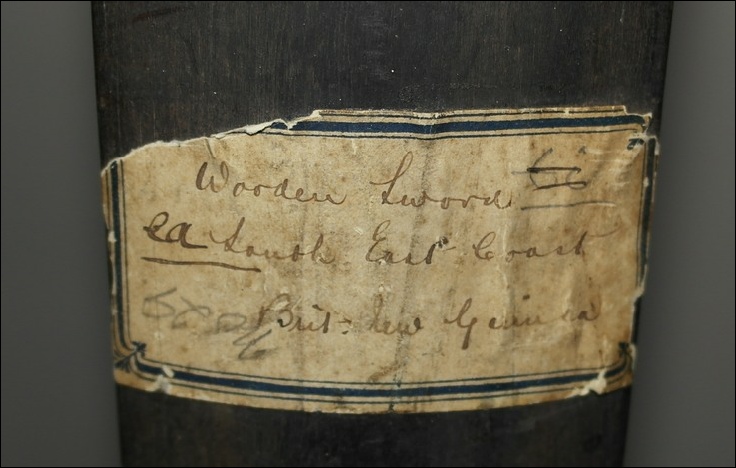 Wooden Sword
ea South East Coast
Brit= New Guinea